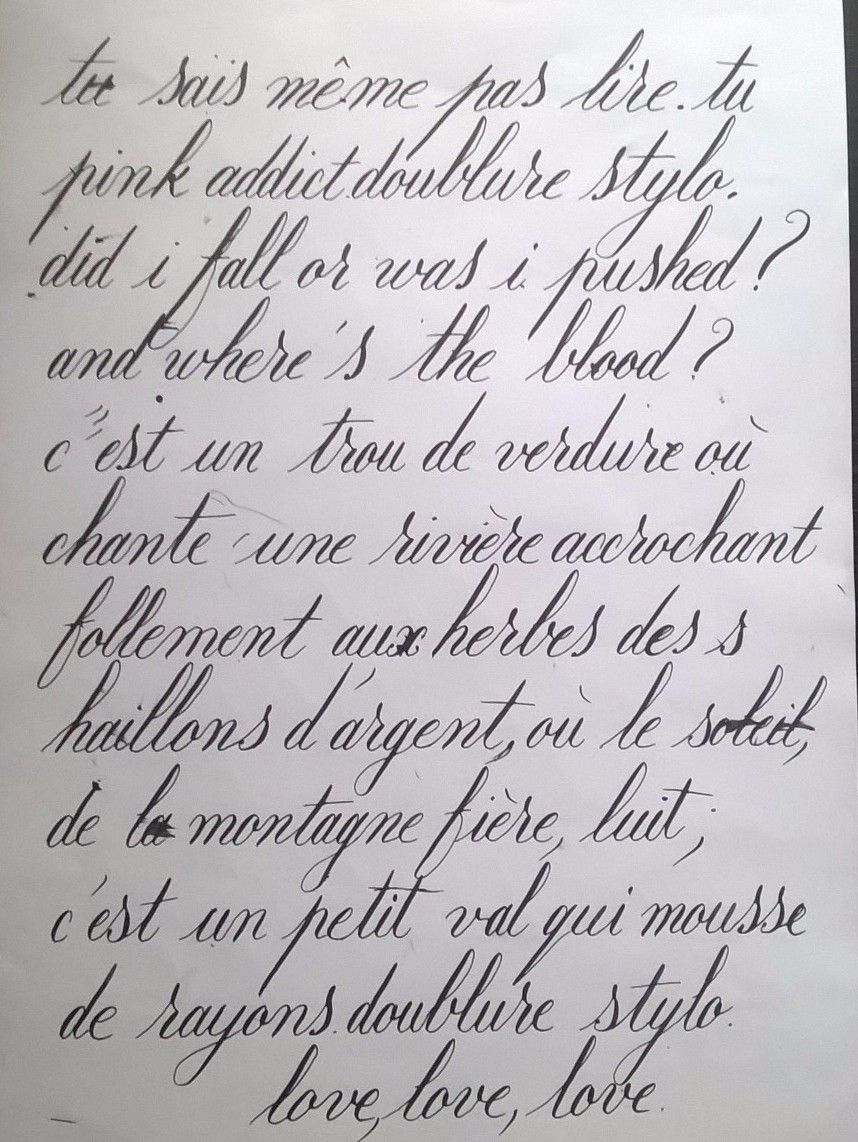 tu sais même pas lire. tu
pink addict.doublure stylo.
did i fall or was i pushed?
and where's the blood?
c'est un trou de verdure où
chante une rivière accrochant
follement aux herbes des s
haillons d'argent, où le soleil,
de la montagne fière, luit;
c'est un petit val qui mousse
de rayons.doublure stylo.
love, love, love.